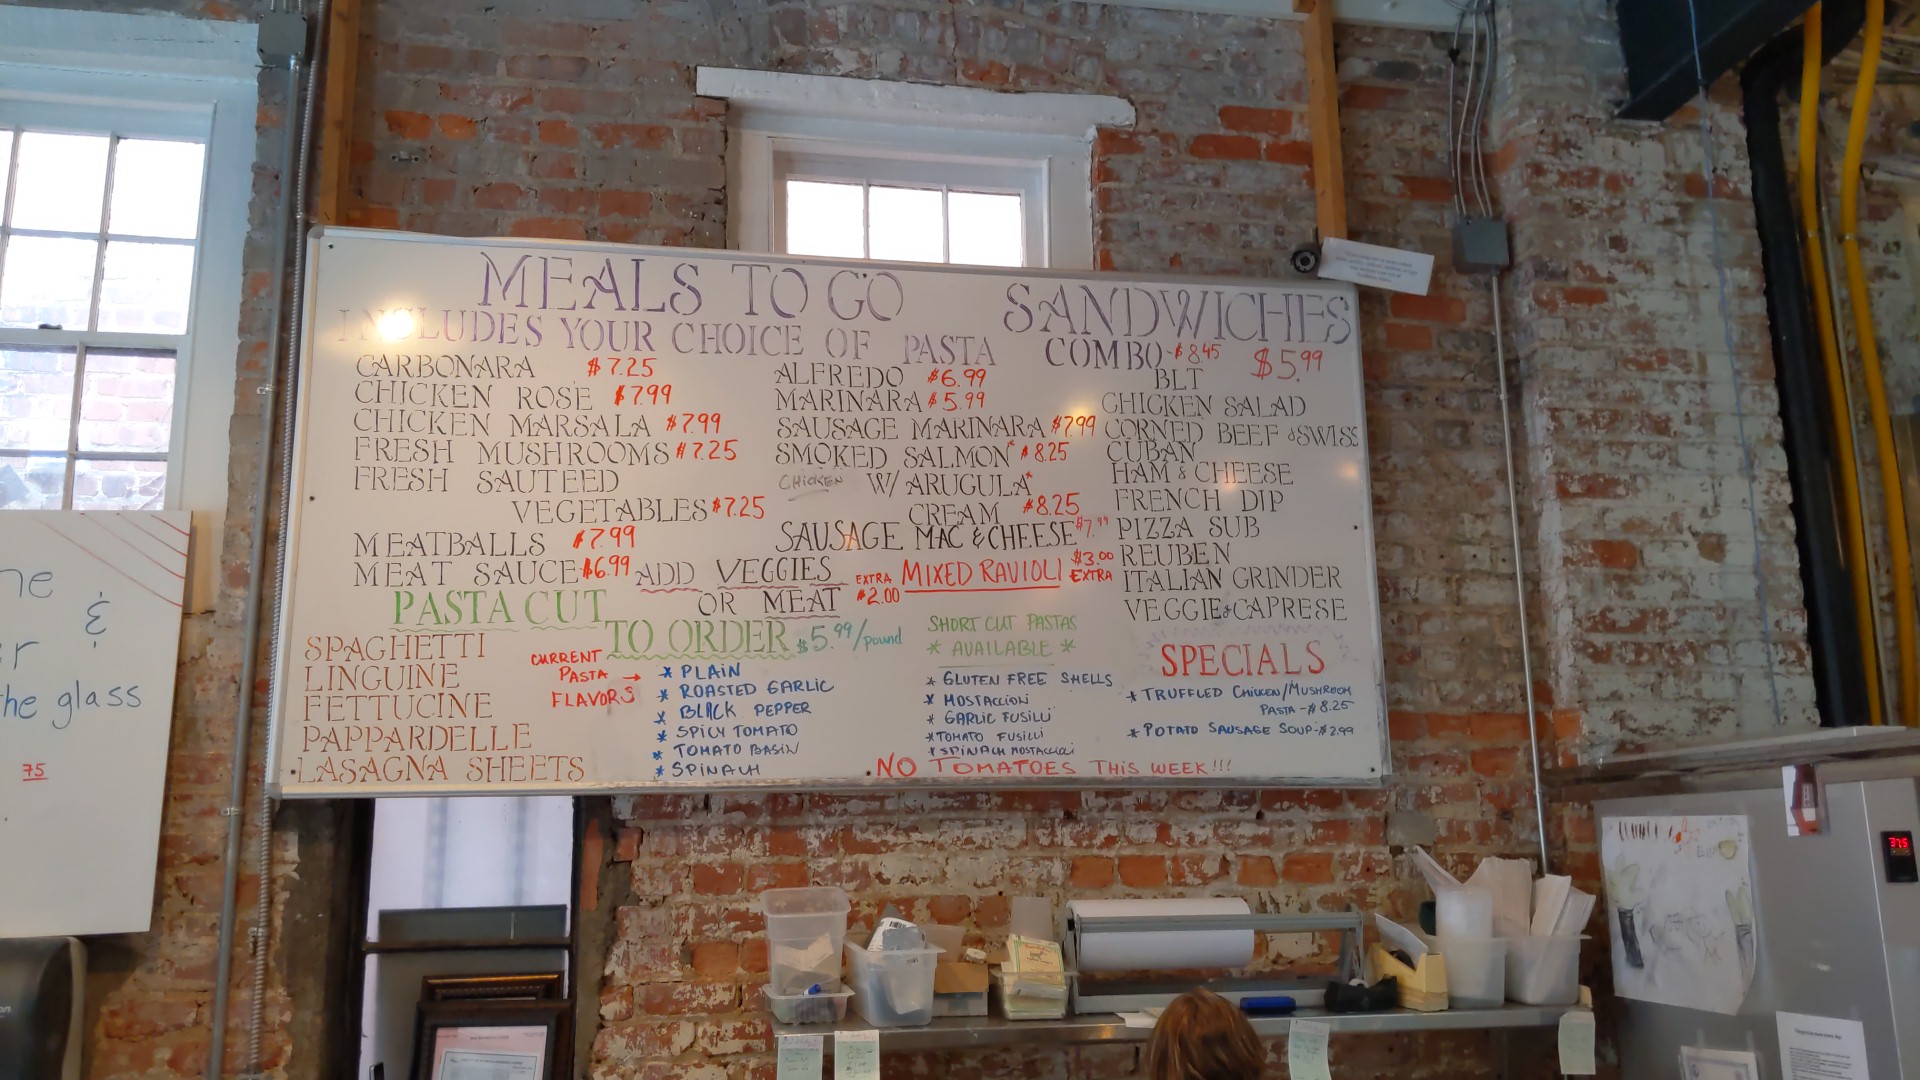 MEALS TO GO
INCLUDES YOUR CHOICE OF PASTA
CARBONARA $7.25
CHICKEN ROSE $7.99
CHICKEN MARSALA $7.99
FRESH MUSHROOMS $7.25
FRESH SAUTEED
VEGETABLES $7.25
MEATBALLS $7.99
MEAT SAUCE $6.99
ALFREDO $6.99
MARINARA $5.99
SAUSAGE MARINARA $7.99
SMOKED SALMON* $8.25
CHICKEN W/ ARUGULA*
CREAM $8.25
SAUSAGE MAC & CHEESE $7.99
ADD VEGGIES
OR MEAT
EXTRA
$2.00
MIXED RAVIOLI
$3.00
EXTRA
SANDWICHES
COMBO-$8.45 $5.99
BLT
CHICKEN SALAD
CORNED BEEF & SWISS
CUBAN
HAM & CHEESE
FRENCH DIP
PIZZA SUB
REUBEN
ITALIAN GRINDER
VEGGIE & CAPRESE
PASTA CUT
TO ORDER $5.99/pound
SPAGHETTI
LINGUINE
FETTUCINE
PAPPARDELLE
LASAGNA SHEETS
CURRENT
PASTA →
FLAVORS
* PLAIN
* ROASTED GARLIC
* BLACK PEPPER
* SPICY TOMATO
* TOMATO BASIN
* SPINACH
SHORT CUT PASTAS
* AVAILABLE *
* GLUTEN FREE SHELLS
* MOSTACCIOLI
* GARLIC FUSILLI
* TOMATO FUSILLI
* SPINACH MOSTACCIOLI
SPECIALS
* TRUFFLED CHICKEN/MUSHROOM
PASTA - $8.25
* POTATO SAUSAGE SOUP - $2.99
NO TOMATOES THIS WEEK!!!
ne
&
r
he glass
75
37.5